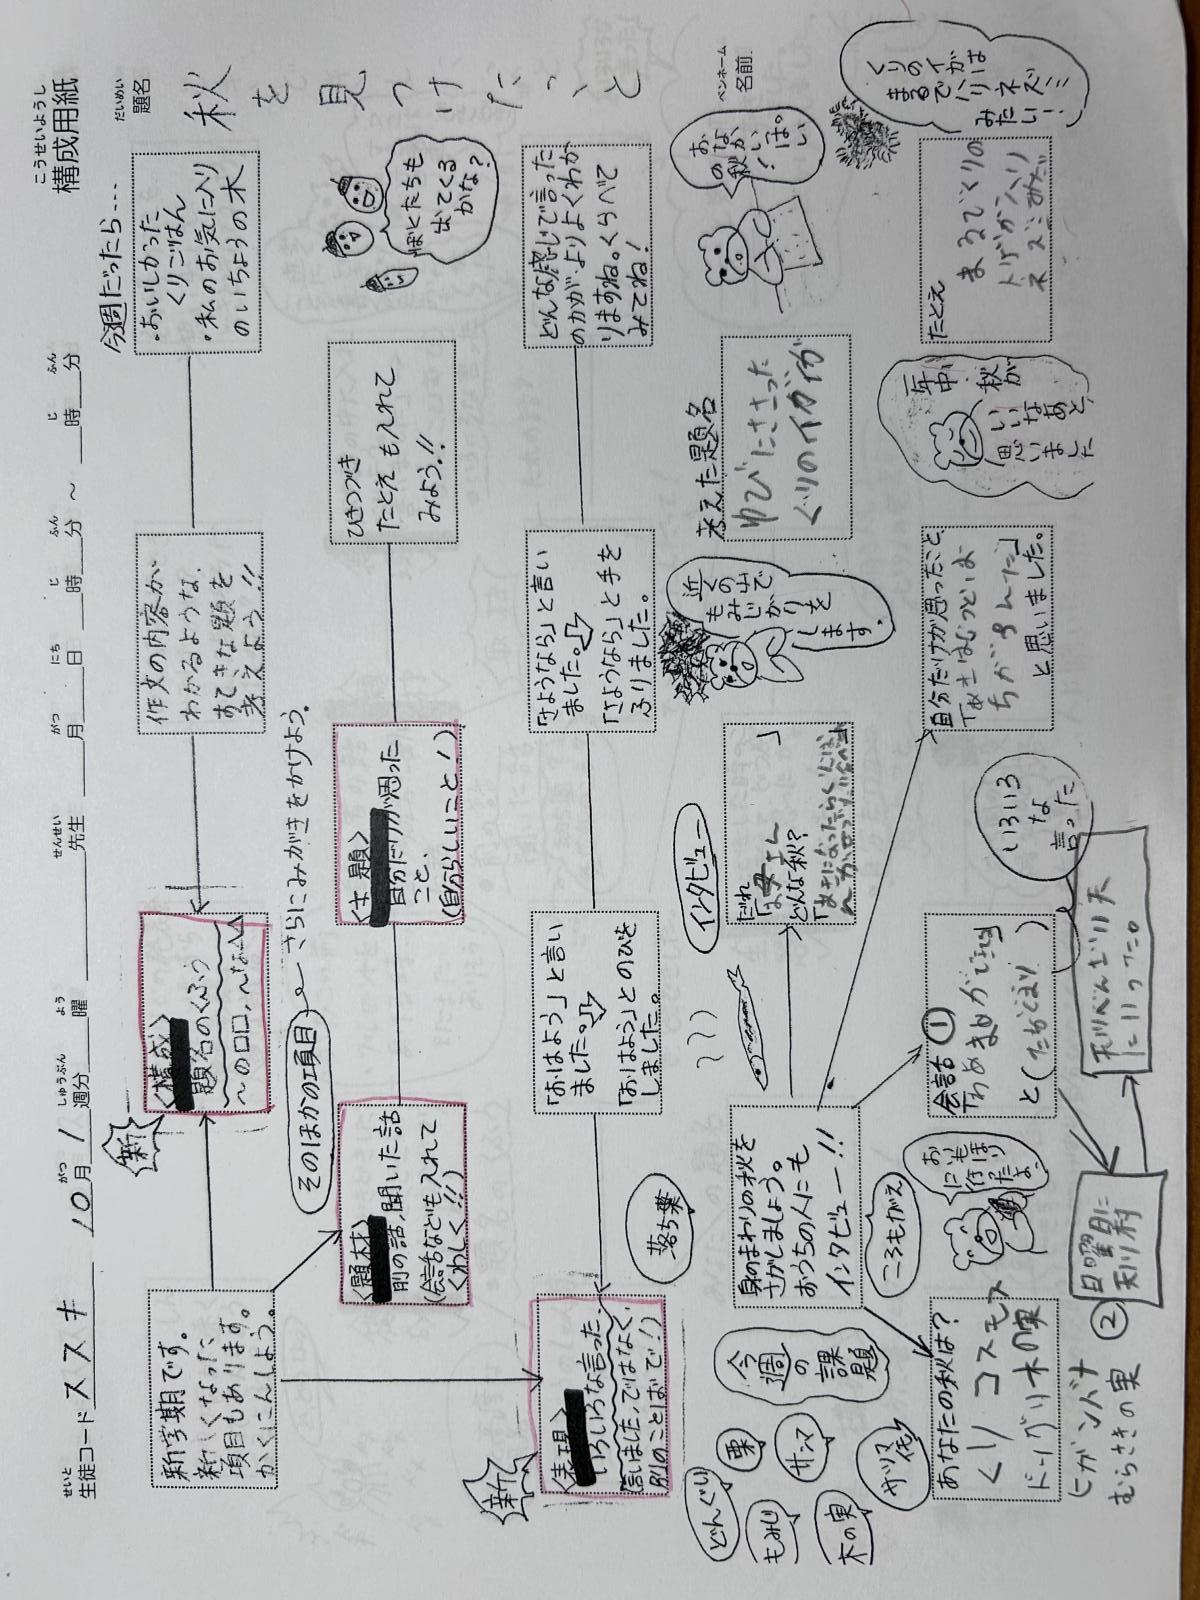 構成用紙
こうせいようし
生徒コード ススキ 10月 1週分 曜 先生 月 日 時 分 ～ 時 分
せいと がつ しゅうぶん よう せんせい がつ にち じ ふん じ ふん
題名 秋を見つけたこと
だいめい
ペンネーム
名前
新学期です。
新しくなった
項目もあります。
かくにんしよう。
新
〈構成〉
題名のくふう
～の口口、～な△△
作文の内容が
わかるような、
すてきな題を
考えよう!!
今週だったら…
・おいしかった
くりごはん
・私のお気に入り
のいちょうの木
そのほかの項目
さらにみがきをかけよう。
〈題材〉
前の話，聞いた話
(会話なども入れて
くわしく!!)
〈主題〉
自分だけが思った
こと、
(自分らしいこと！)
ひきつづき
たとえも入れて
みよう!!
ぼくたちも
出てくる
かな？
新
〈表現〉
いろいろな言った、
言いました，ではなく、
別のことばで！)
「おはよう」と言い
ました。
「おはよう」とのびを
しました。
「さようなら」と言い
ました。
「さようなら」と手を
ふりました。
どんな感じで言った
のかがよりよくわか
りますね。くらべて
みてね！
どんぐり
栗
もみじ
サンマ
木の実
サツマイモ
今週の課題
落ち葉
身のまわりの秋を
さがしましょう。
おうちの人にも
インタビュー!!
ころもがえ
インタビュー
だれ
「お母さん」
どんな秋？
近くの山で
もみじがりを
します。
考えた題名
ゆびにささった
くりのイガイガ
おなかいっぱい
の秋！
くりのイガ
まるで
ハリネズミ
みたい！
あなたの秋は？
くり コスモス
ドングリ 木の実
ヒガンバナ
むらさきの実
おにも
行ほり
たりよ
会話 ①
いろいろ
な
言った
②
日曜日に
天川村
自分だけが思ったこと
と思いました。
一年中、秋が
いいなあと
思いました
たとえ
まるでくりの
トゲがハリ
ネズミみたい